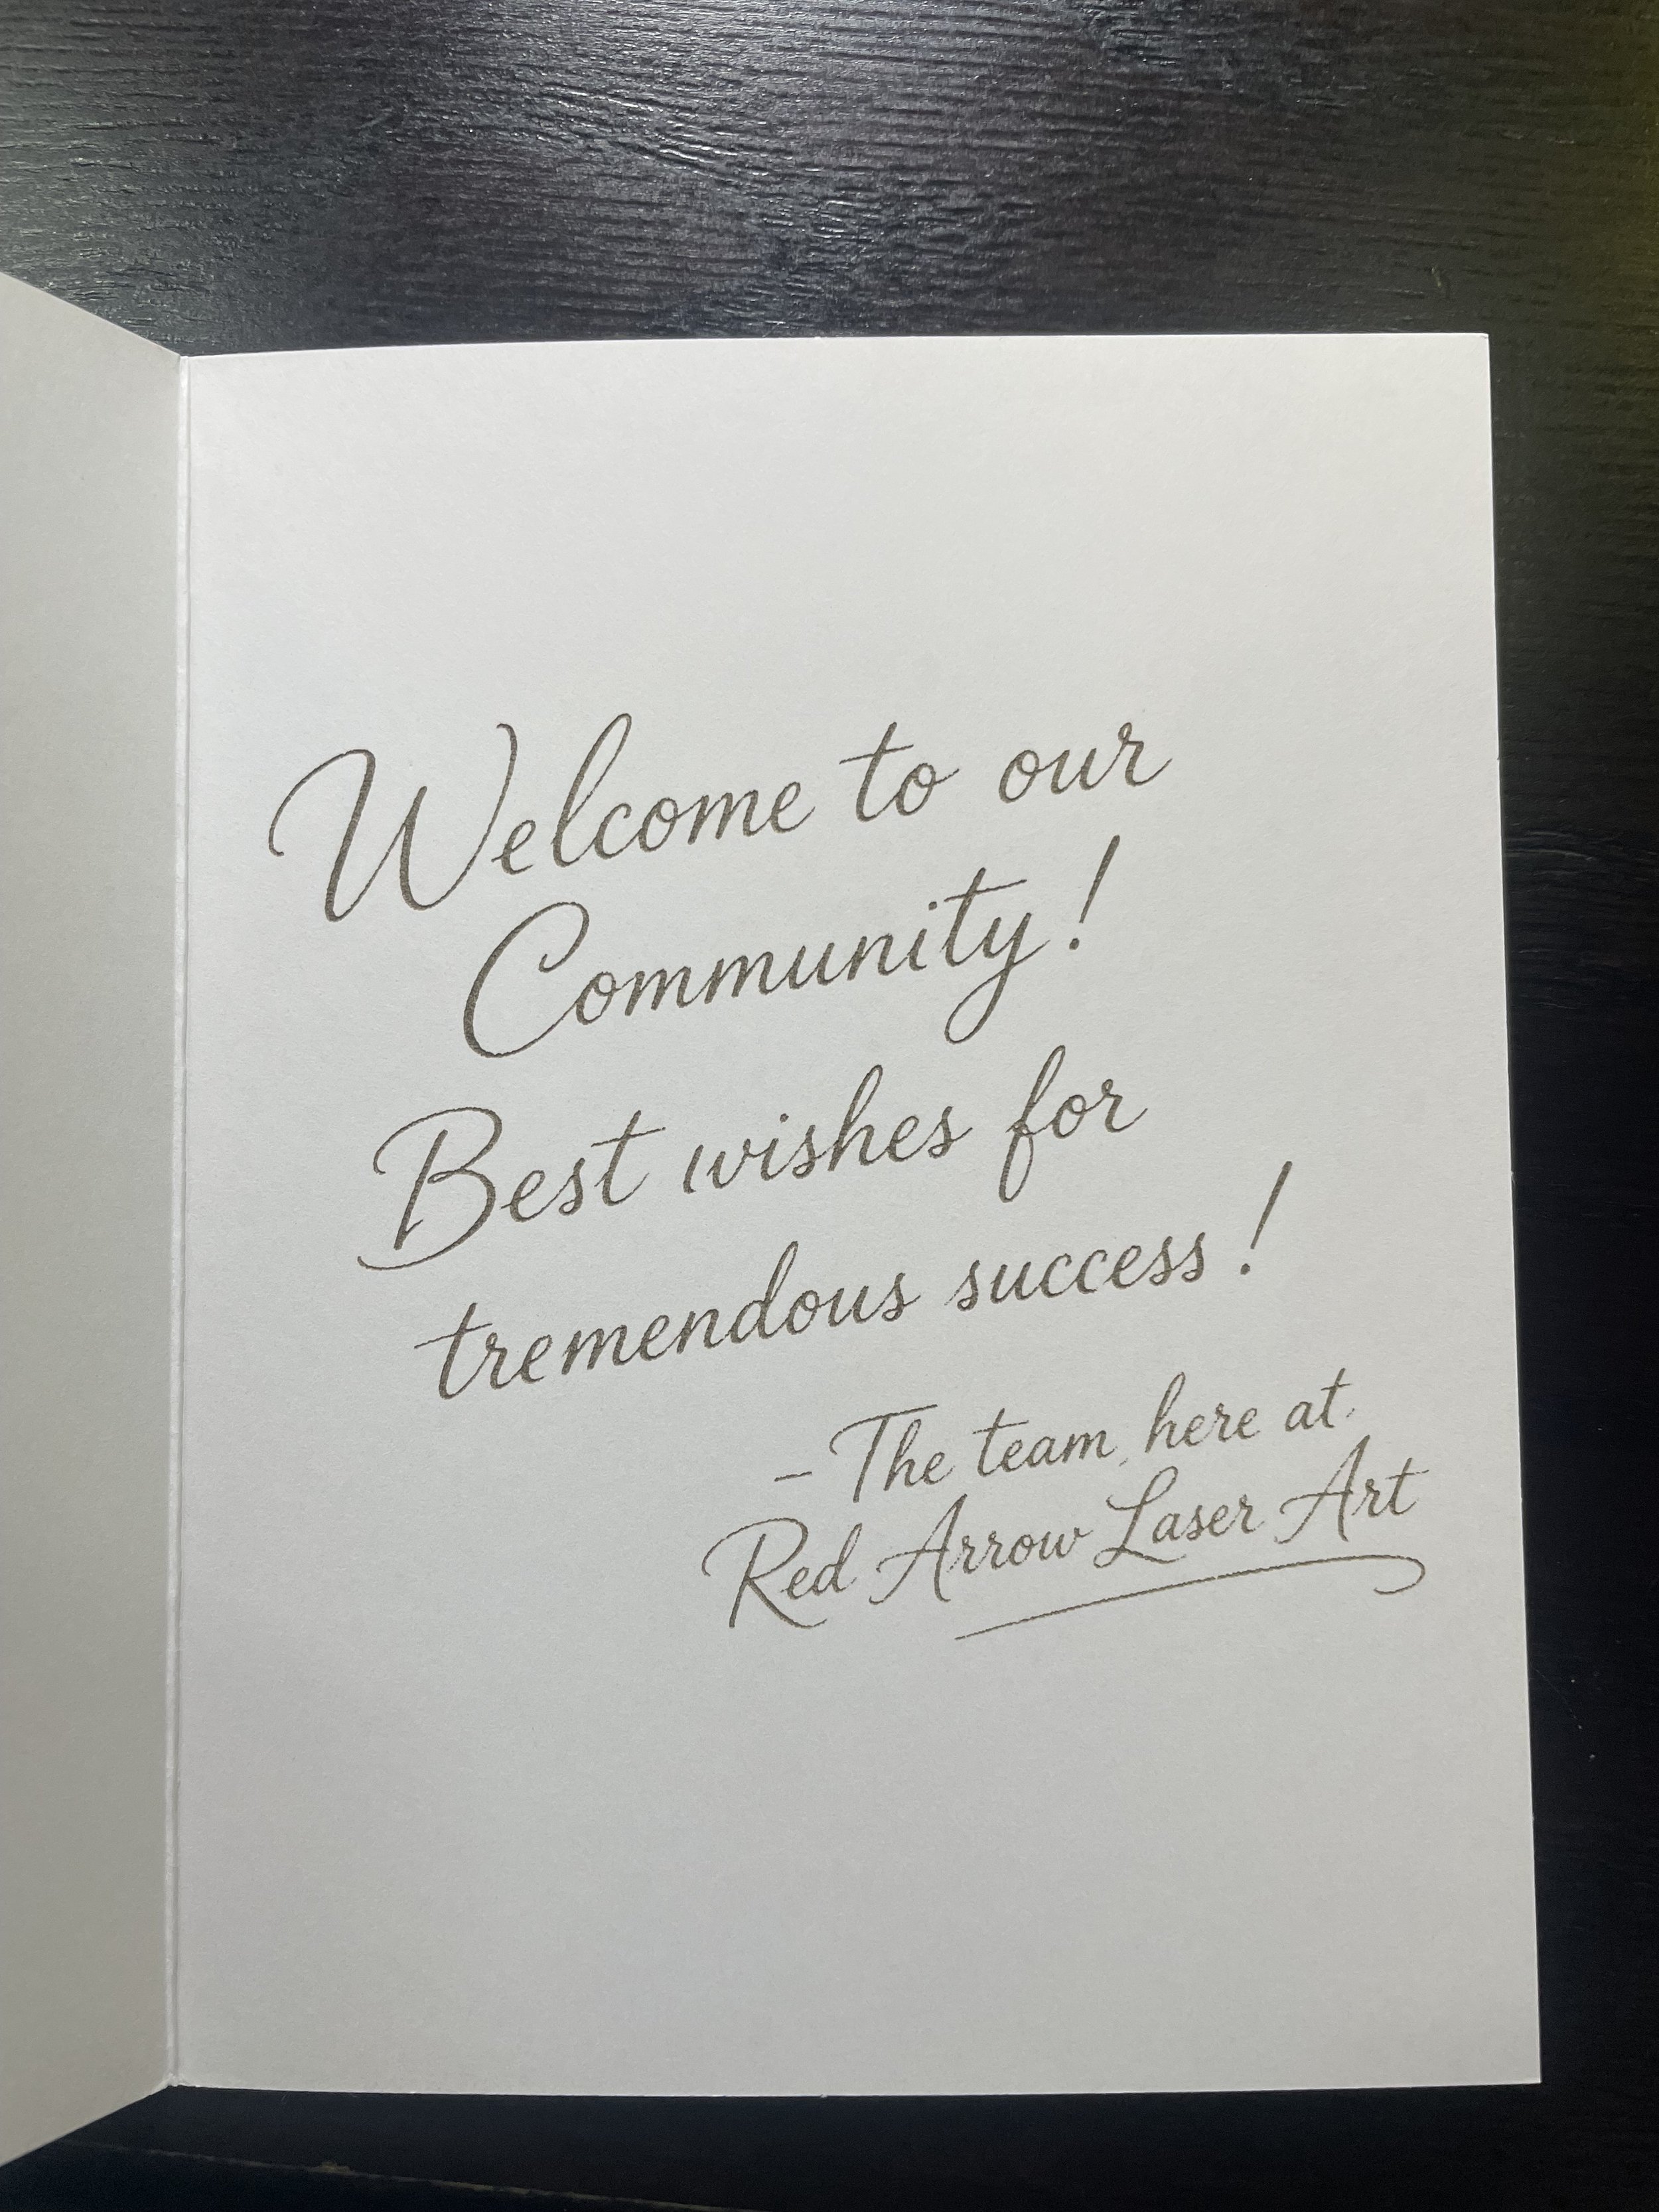 Welcome to our
Community!
Best wishes for
tremendous success!
- The team here at
Red Arrow Laser Art